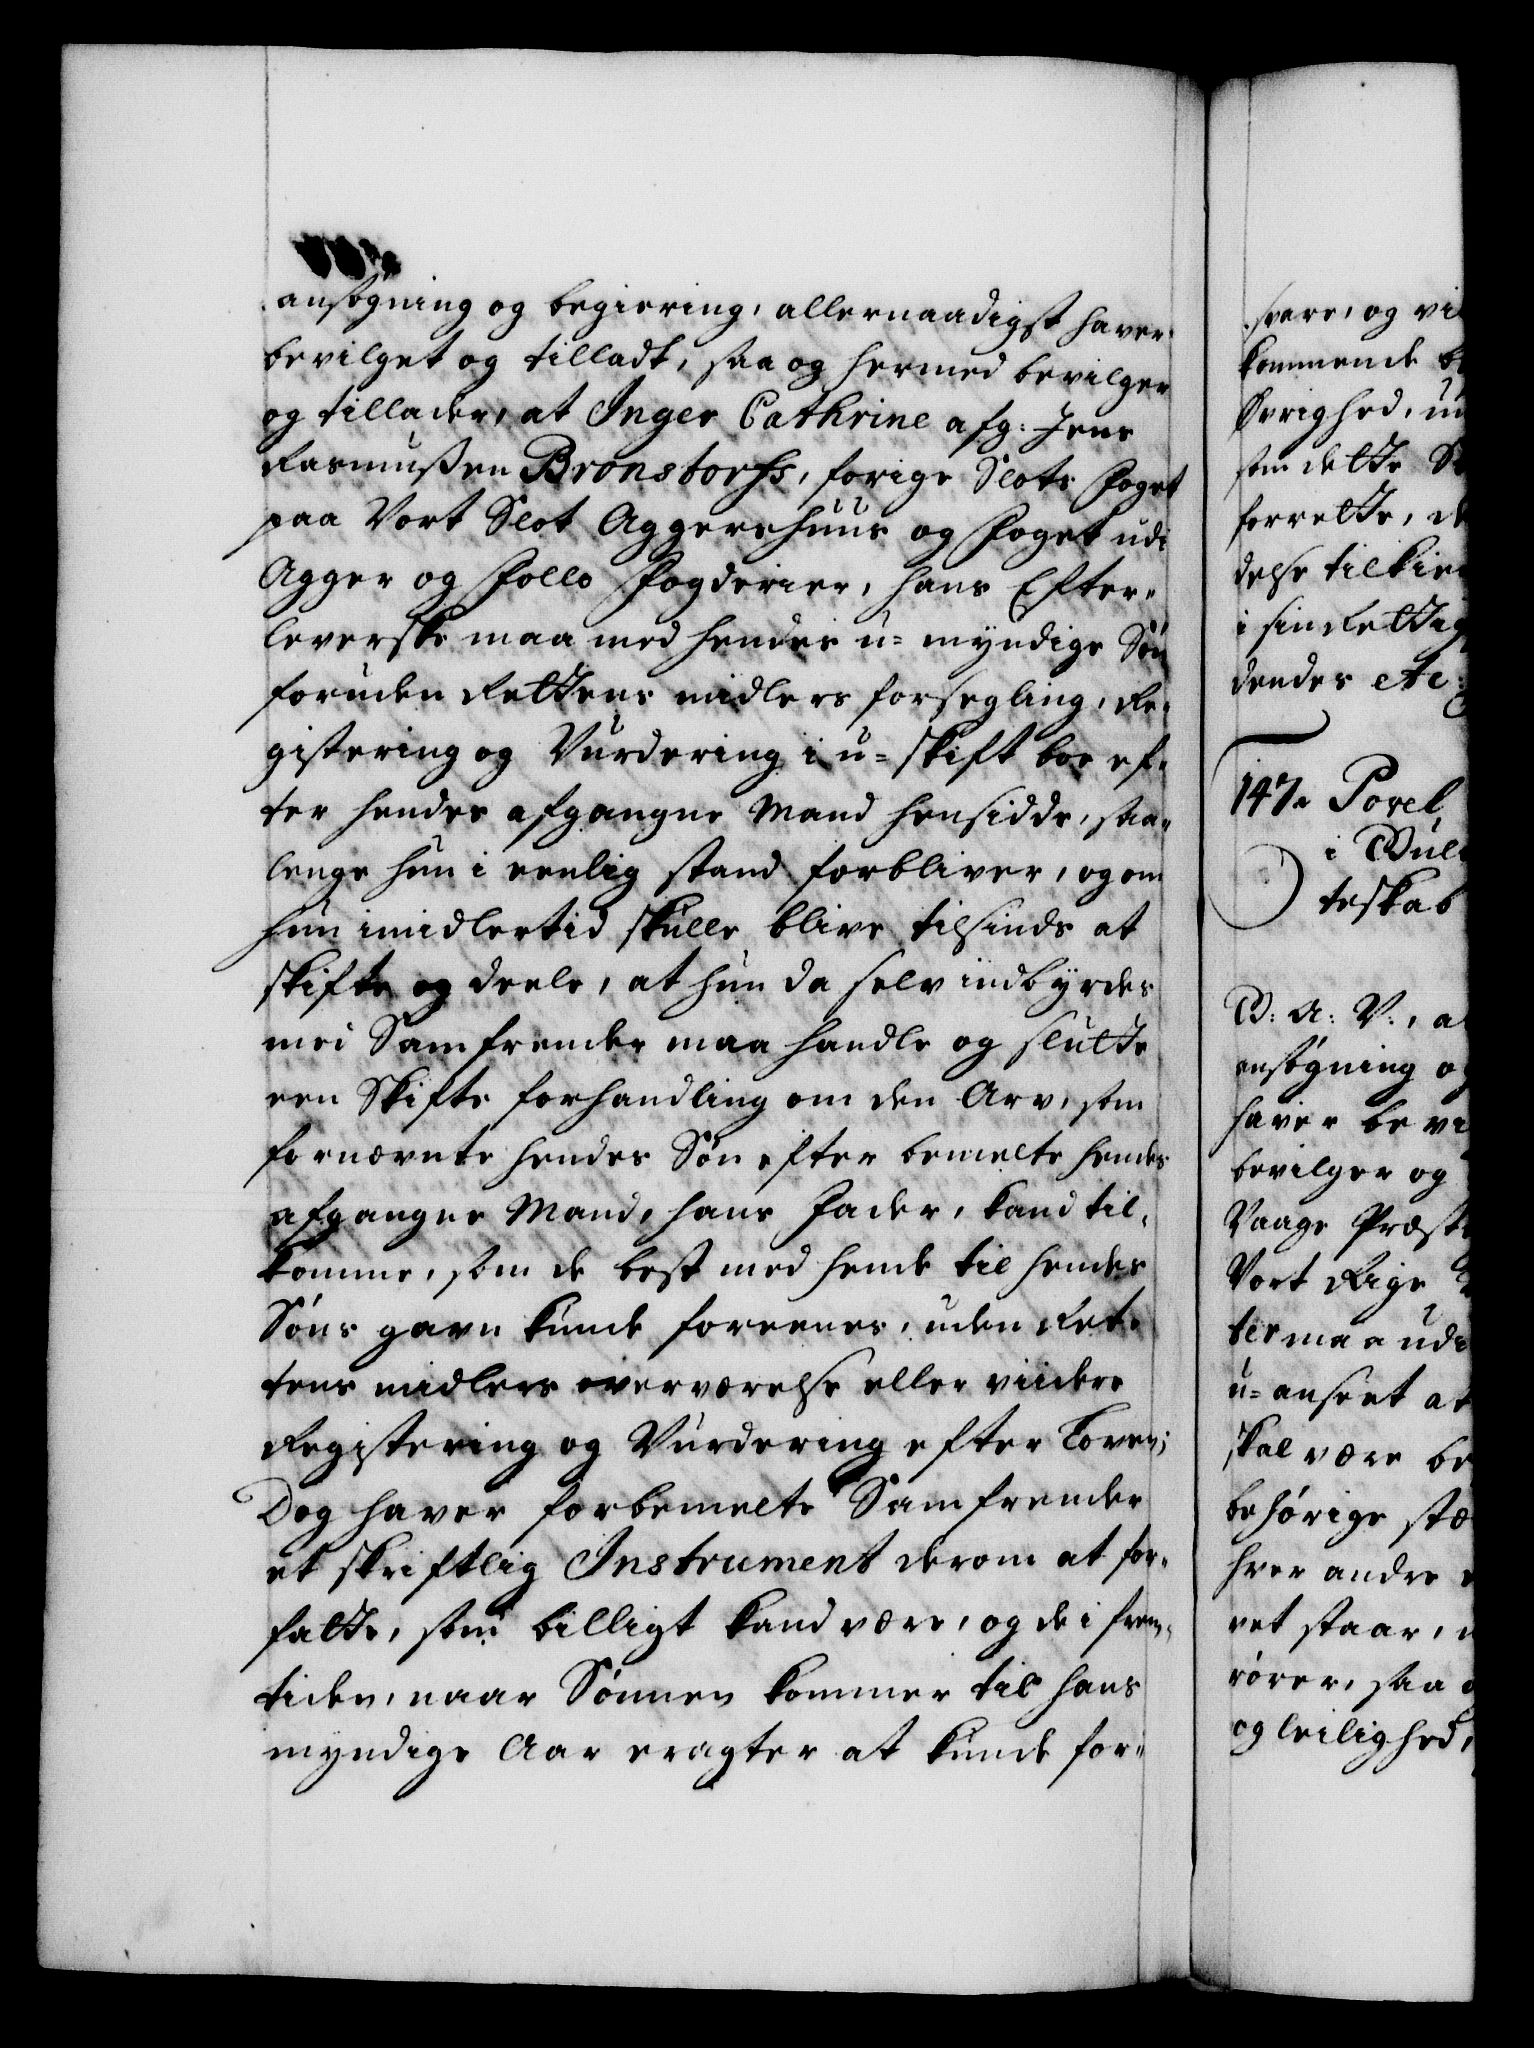 ansøgning og begiering, allernaadigst haver
bevilget og tilladt, saa og hermed bevilger
og tillader, at Inger Cathrine afg: Jens
Rasmußen Bronstorfs, forige Slots Foget
paa Vort Slot Aggershuus og Foget udi
Agger og Follo Fogderier, hans Efter-
leverske maa med hendes u-myndige Søn
foruden Rettens midlers forsegling, Re-
gistering og Vurdering i u-skift boe ef-
ter hendes afgangne Mand hensidde, saa-
lenge hun i eenlig stand forbliver, og om
hun imidlertid skulle blive tilsinds at
skifte og deele, at hun da selv indbyrdes
med Samfrender maa handle og slutte
een Skifte forhandling om den Arv, som
fornævnte hendes Søn efter bemelte hendes
afgangne Mand, hans Fader, kand til-
komme, som de best med hende til hendes
Søns gavn kunde foreenes, uden Ret-
tens midlers overværelse eller viidere
Registering og Vurdering efter Loven;
Dog haver forbemelte Samfrender
et skriftlig Instrument derom at for-
fatte, som billigt kand være, og de i frem-
tiden, naar Sønnen kommer til hans
myndige Aar eragter at kunde for-
svare, og vi
kommende
Øvrighed,
som dette
forrette,
delse tilkien
i sin Rettig
dendes etc:
147. Povel
i
teskab
B: A: V:, a
ansøgning og
haver bevi
bevilger og
Vaage Præste
Vort Rige
ter maa udi
u-anseet at
skal være be
behørige stæ
hver andre
vet staar,
rører, saa
og leilighed,